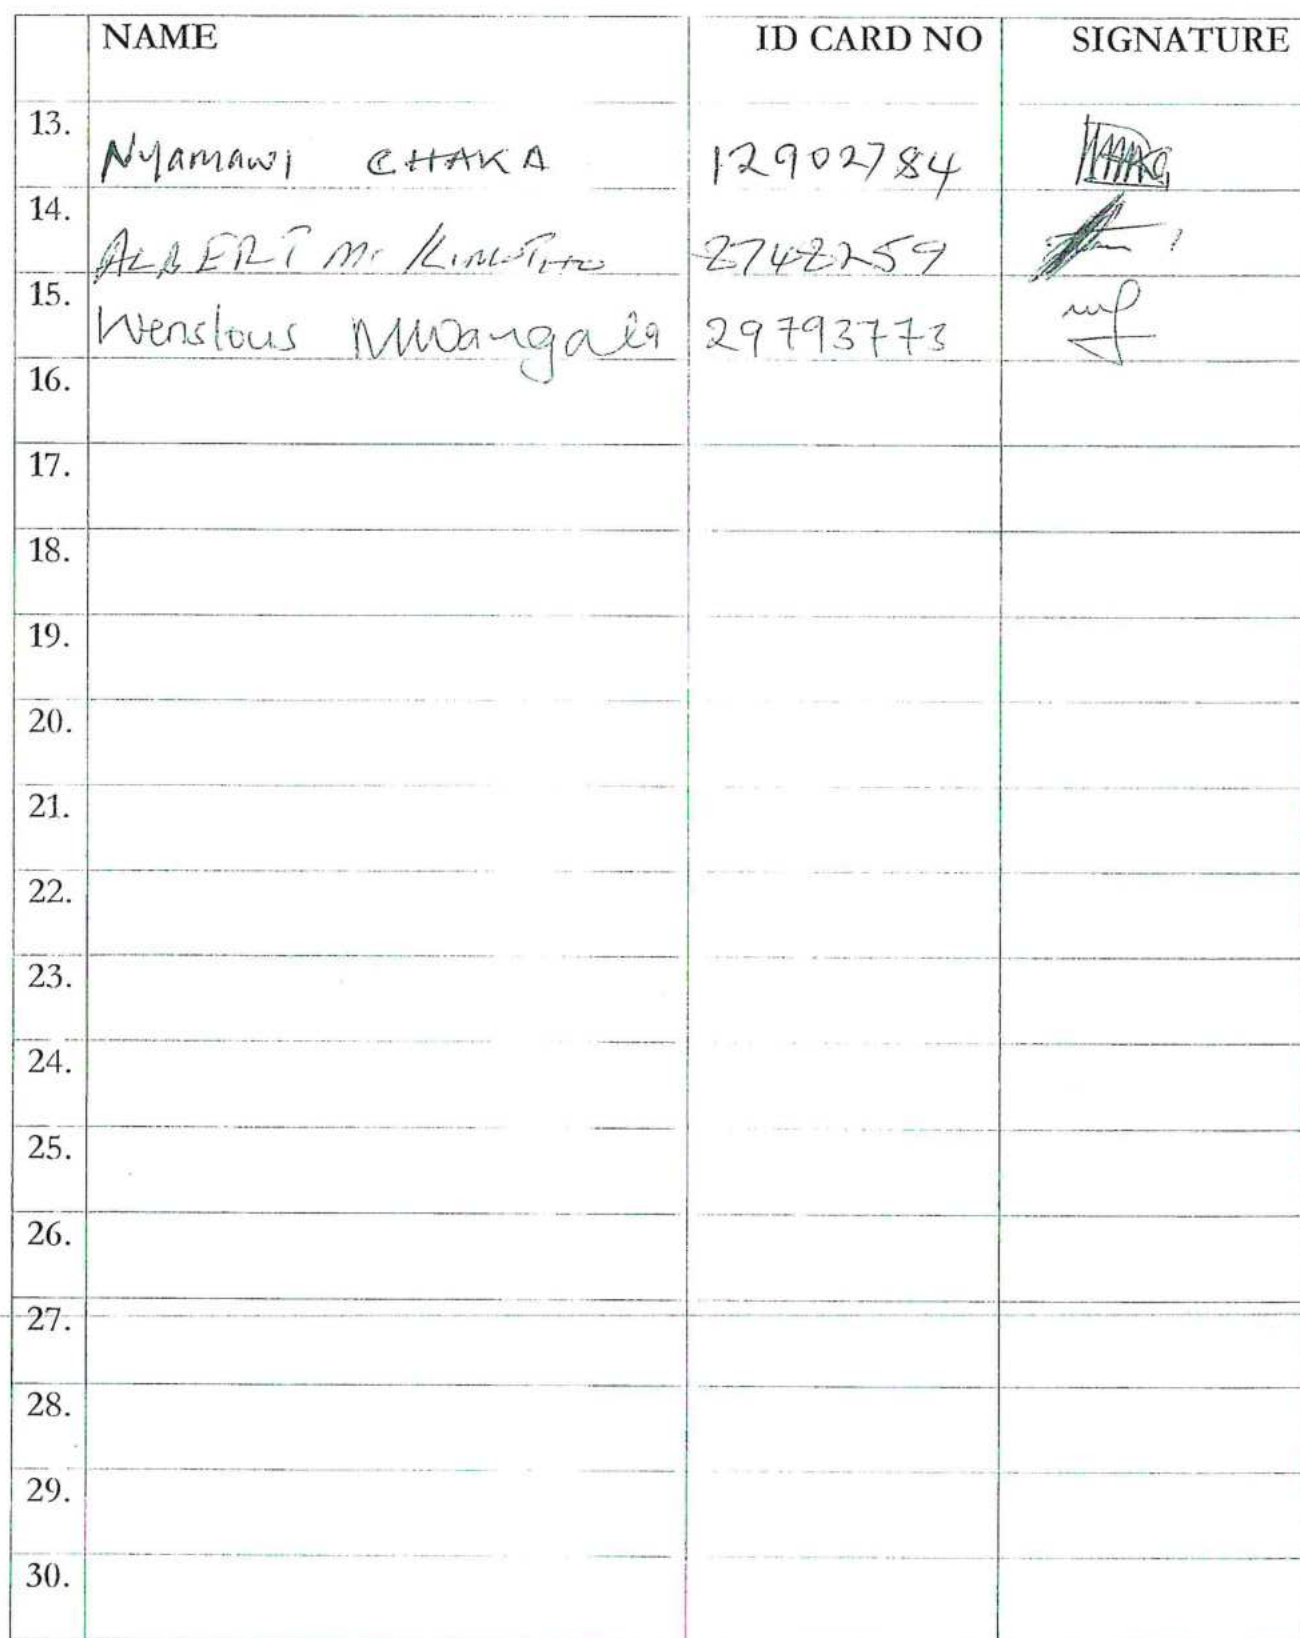 NAME ID CARD NO SIGNATURE
13. Nyamawi CHAKA 12902784
14. ALBERT M. KIMOTHO
15. Wenslous MWangala 29793773
16.
17.
18.
19.
20.
21.
22.
23.
24.
25.
26.
27.
28.
29.
30.